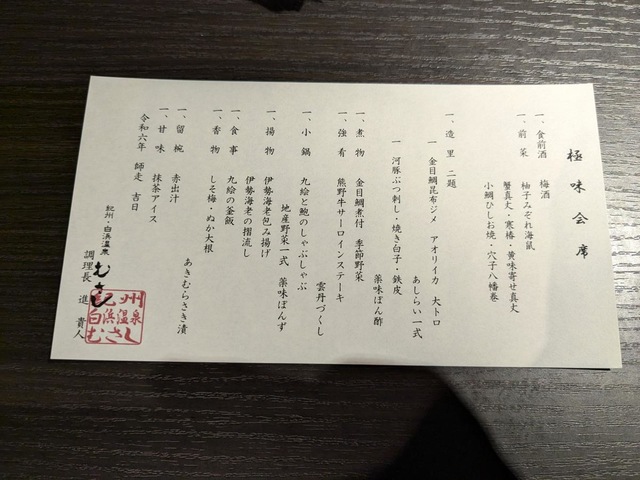 極味会席
一、食前酒　梅酒
一、前菜　柚子みぞれ海鼠
蟹真丈・寒椿・黄味寄せ真丈
小鯛ひしお焼・穴子八幡巻
一、造里　二題
一　金目鯛昆布ジメ　アオリイカ　大トロ
あしらい一式
一　河豚ぶつ刺し・焼き白子・鉄皮
薬味ぽん酢
一、煮物　金目鯛煮付　季節野菜
一、強肴　熊野牛サーロインステーキ
雲丹づくし
一、小鍋　九絵と鮑のしゃぶしゃぶ
地産野菜一式　薬味ぽんず
一、揚物　伊勢海老包み揚げ
伊勢海老の摺流し
一、食事　九絵の釜飯
一、香物　しそ梅・ぬか大根
あきむらさき漬
一、留椀　赤出汁
一、甘味　抹茶アイス
令和六年　師走　吉日
紀州・白浜温泉
むさし
調理長　進　貴人
紀州
白浜温泉
むさし